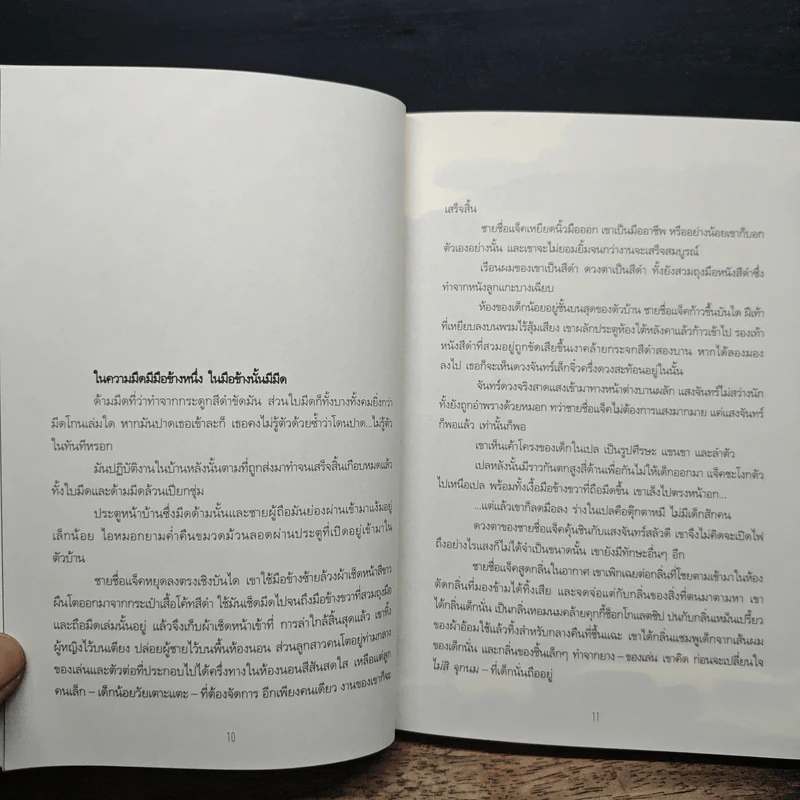 ในความมืดมีมือข้างหนึ่ง ในมือข้างนั้นมีมีด
ด้ามมีดที่ว่าทำจากกระดูกสีดำขัดมัน ส่วนใบมีดก็ทั้งบางทั้งคมยิ่งกว่า
มีดโกนเล่มใด หากมันปาดเธอเข้าละก็ เธอคงไม่รู้ตัวด้วยซ้ำว่าโดนปาด...ไม่รู้ตัว
ในทันทีหรอก
มันปฏิบัติงานในบ้านหลังนั้นตามที่ถูกส่งมาทำจนเสร็จสิ้นเกือบหมดแล้ว
ทั้งใบมีดและด้ามมีดล้วนเปียกชุ่ม
ประตูหน้าบ้านซึ่งมีดด้ามนั้นและชายผู้ถือมันย่องผ่านเข้ามาแง้มอยู่
เล็กน้อย ไอหมอกยามค่ำคืนขมวดม้วนลอดผ่านประตูที่เปิดอยู่เข้ามาใน
ตัวบ้าน
ชายชื่อแจ็คหยุดลงตรงเชิงบันได เขาใช้มือข้างซ้ายล้วงผ้าเช็ดหน้าสีขาว
ผืนโตออกมาจากกระเป๋าเสื้อโค้ทสีดำ ใช้มันเช็ดมีดไปจนถึงมือข้างขวาที่สวมถุงมือ
และถือมีดเล่มนั้นอยู่ แล้วจึงเก็บผ้าเช็ดหน้าเข้าที่ การล่าใกล้สิ้นสุดแล้ว เขาทิ้ง
ผู้หญิงไว้บนเตียง ปล่อยผู้ชายไว้บนพื้นห้องนอน ส่วนลูกสาวคนโตอยู่ท่ามกลาง
ของเล่นและตัวต่อที่ประกอบไปได้ครึ่งทางในห้องนอนสีสันสดใส เหลือแต่ลูก
คนเล็ก – เด็กน้อยวัยเตาะแตะ – ที่ต้องจัดการ อีกเพียงคนเดียว งานของเขาก็จะ
10
เสร็จสิ้น
ชายชื่อแจ็คเหยียดนิ้วมือออก เขาเป็นมืออาชีพ หรืออย่างน้อยเขาก็บอก
ตัวเองอย่างนั้น และเขาจะไม่ยอมยิ้มจนกว่างานจะเสร็จสมบูรณ์
เรือนผมของเขาเป็นสีดำ ดวงตาเป็นสีดำ ทั้งยังสวมถุงมือหนังสีดำซึ่ง
ทำจากหนังลูกแกะบางเฉียบ
ห้องของเด็กน้อยอยู่ชั้นบนสุดของตัวบ้าน ชายชื่อแจ็คก้าวขึ้นบันได ฝีเท้า
ที่เหยียบลงบนพรมไร้สุ้มเสียง เขาผลักประตูห้องใต้หลังคาแล้วก้าวเข้าไป รองเท้า
หนังสีดำที่สวมอยู่ถูกขัดเสียขึ้นเงาคล้ายกระจกสีดำสองบาน หากได้ลองมอง
ลงไป เธอก็จะเห็นดวงจันทร์เล็กจิ๋วครึ่งดวงสะท้อนอยู่ในนั้น
จันทร์ดวงจริงสาดแสงเข้ามาทางหน้าต่างบานผลัก แสงจันทร์ไม่สว่างนัก
ทั้งยังถูกอำพรางด้วยหมอก ทว่าชายชื่อแจ็คไม่ต้องการแสงมากมาย แค่แสงจันทร์
ก็พอแล้ว เท่านั้นก็พอ
เขาเห็นเค้าโครงของเด็กในเปล เป็นรูปศีรษะ แขนขา และลำตัว
เปลหลังนั้นมีราวกันตกสูงสี่ด้านเพื่อกันไม่ให้เด็กออกมา แจ็คชะโงกตัว
ไปเหนือเปล พร้อมทั้งเงื้อมือข้างขวาที่ถือมีดขึ้น เขาเล็งไปตรงหน้าอก...
...แต่แล้วเขาก็ลดมือลง ร่างในเปลคือตุ๊กตาหมี ไม่มีเด็กสักคน
ดวงตาของชายชื่อแจ็คคุ้นชินกับแสงจันทร์สลัวดี เขาจึงไม่คิดจะเปิดไฟ
ถึงอย่างไรแสงก็ไม่ได้จำเป็นขนาดนั้น เขายังมีทักษะอื่นๆ อีก
ชายชื่อแจ็คสูดกลิ่นในอากาศ เขาเพิกเฉยต่อกลิ่นที่โชยตามเข้ามาในห้อง
ตัดกลิ่นที่มองข้ามได้ทิ้งเสีย และจดจ่อแต่กับกลิ่นของสิ่งที่ตนมาตามหา เขา
ได้กลิ่นเด็กนั่น เป็นกลิ่นหอมนมคล้ายคุกกี้ช็อกโกแลตชิป ปนกับกลิ่นเหม็นเปรี้ยว
ของผ้าอ้อมใช้แล้วทิ้งสำหรับกลางคืนที่ชื้นแฉะ เขาได้กลิ่นแชมพูเด็กจากเส้นผม
ของเด็กนั่น และกลิ่นของชิ้นเล็กๆ ทำจากยาง – ของเล่น เขาคิด ก่อนจะเปลี่ยนใจ
ไม่สิ จุกนม – ที่เด็กนั่นถืออยู่
11